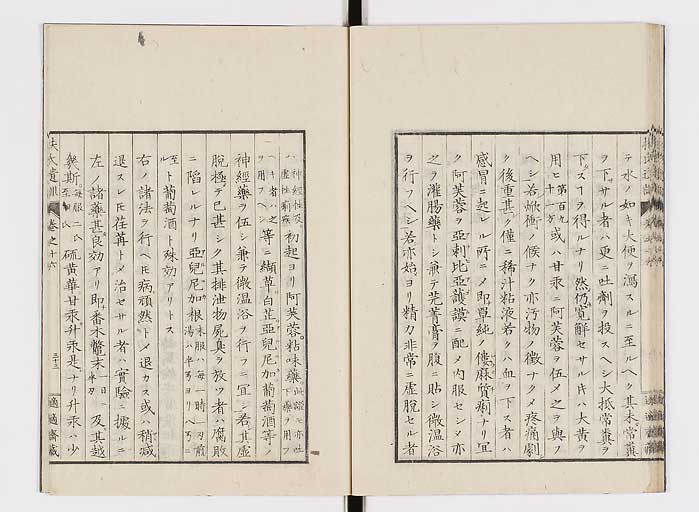 テ水ノ如キ大便ヲ瀉スルニ至ルヘク其未常糞
ヲ下サル者ハ更ニ吐劑ヲ投スヘシ大抵常糞ヲ
下スヿヲ得ルナリ然仍寛解セサル片ハ大黄ヲ
用ヒ第百九十一方或ハ甘汞ニ阿芙蓉ヲ伍メ之ヲ與フ
ヘシ若焮衝ノ候ナク亦汚物ノ徴ナクメ疼痛劇
ク後重甚ク僅ニ稀汁粘液若クハ血ヲ下ス者ハ
感冒ニ起レル所ニメ即單純ノ僂麻質痢ナリ宜
ク阿芙蓉ヲ亞剌比亞護謨ニ配メ内服セシメ亦
之ヲ灌腸藥トシ兼テ芫菁膏ヲ腹ニ貼シ微温浴
ヲ行フヘシ若亦始ヨリ精力非常ニ虚脱セル者
ハ神經性及ハ虚性痢疾ヲ用フヘシ
ヘキ者ハ之初起ヨリ阿芙蓉粘味藥此證モ亦吐下藥ヲ用フ
等ニ纈草白芷亞兒尼加葡萄酒等ノ
神經藥ヲ伍シ兼テ微温浴ヲ行フニ宜シ若其虚
脱極テ已甚シク其排泄物屍臭ヲ放ツ者ハ腐敗
ニ陷レルナリ亞兒尼加根末服ハ毎一時一刃煎湯ハ半弓ヨリ八弓ニ
至ルト葡萄酒ト殊効アリトス
右ノ諸法ヲ行ヘ𪜈病頑然トメ退カス或ハ稍減
退スレ𪜈荏苒トメ治セサル者ハ實驗ニ據ルニ
左ノ諸藥甚良効アリ即番木鼈末一日半刃及其越
幾斯毎服二氏至氏硫黄華甘汞升汞是ナリ升汞ハ少
扶氏遺訓 卷之十六
三十三 適適齋藏